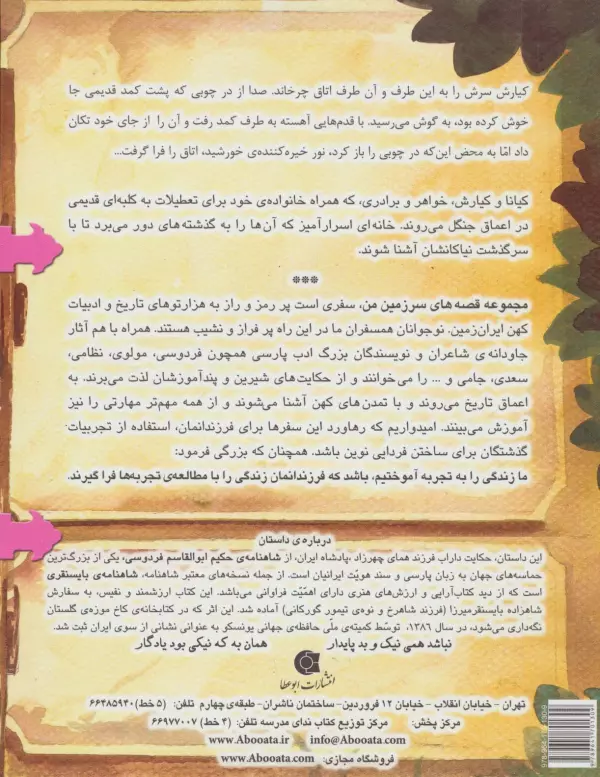 کیارش سرش را به این طرف و آن طرف اتاق چرخاند. صدا از در چوبی که پشت کمد قدیمی جا
خوش کرده بود، به گوش می‌رسید. با قدم‌هایی آهسته به طرف کمد رفت و آن را از جای خود تکان
داد امّا به محض این‌که در چوبی را باز کرد، نور خیره‌کننده‌ی خورشید، اتاق را فرا گرفت...
کیانا و کیارش، خواهر و برادری، که همراه خانواده‌ی خود برای تعطیلات به کلبه‌ای قدیمی
در اعماق جنگل می‌روند. خانه‌ای اسرارآمیز که آن‌ها را به گذشته‌های دور می‌برد تا با
سرگذشت نیاکانشان آشنا شوند.
***
مجموعه قصه های سرزمین من، سفری است پر رمز و راز به هزارتوهای تاریخ و ادبیات
کهن ایران‌زمین. نوجوانان همسفران ما در این راه پر فراز و نشیب هستند. همراه با هم آثار
جاودانه ی شاعران و نویسندگان بزرگ ادب پارسی همچون فردوسی، مولوی، نظامی،
سعدی، جامی و ... را می‌خوانند و از حکایت‌های شیرین و پندآموزشان لذت می‌برند. به
اعماق تاریخ می‌روند و با تمدن‌های کهن آشنا می‌شوند و از همه مهم‌تر مهارتی را نیز
آموزش می‌بینند. امیدواریم که رهاورد این سفرها برای فرزندانمان، استفاده از تجربیات
گذشتگان برای ساختن فردایی نوین باشد. همچنان که بزرگی فرمود:
ما زندگی را به تجربه آموختیم، باشد که فرزندانمان زندگی را با مطالعه‌ی تجربه‌ها فرا گیرند.
درباره‌ی داستان
این داستان، حکایت داراب فرزند همای چهرزاد، پادشاه ایران، از شاهنامه‌ی حکیم ابوالقاسم فردوسی، یکی از بزرگ‌ترین
حماسه‌های جهان به زبان پارسی و سند هویّت ایرانیان است. از جمله نسخه‌های معتبر شاهنامه، شاهنامه‌ی بایسنقری
است که از دید کتاب‌آرایی و ارزش‌های هنری دارای اهمّیّت فراوانی می‌باشد. این کتاب ارزشمند و نفیس، به سفارش
شاهزاده بایسنقرمیرزا (فرزند شاهرخ و نوه‌ی تیمور گورکانی) آماده شد. این اثر که در کتابخانه‌ی کاخ موزه‌ی گلستان
نگه‌داری می‌شود، در سال ۱۳۸۶، توسّط کمیته‌ی ملّی حافظه‌ی جهانی یونسکو به عنوانی نشانی از سوی ایران ثبت شد.
نباشد همی نیک و بد پایدار همان به که نیکی بود یادگار
انتشارات ابوعطا
تهران - خیابان انقلاب - خیابان ۱۲ فروردین- ساختمان ناشران- طبقه‌ی چهارم تلفن: (۵ خط) ۶۶۴۸۵۹۴۰
مرکز پخش: مرکز توزیع کتاب ندای مدرسه تلفن: (۴ خط) ۶۶۹۷۷۰۰۷
www.Abooata.ir info@Abooata.com
فروشگاه مجازی: www.Abooata.com